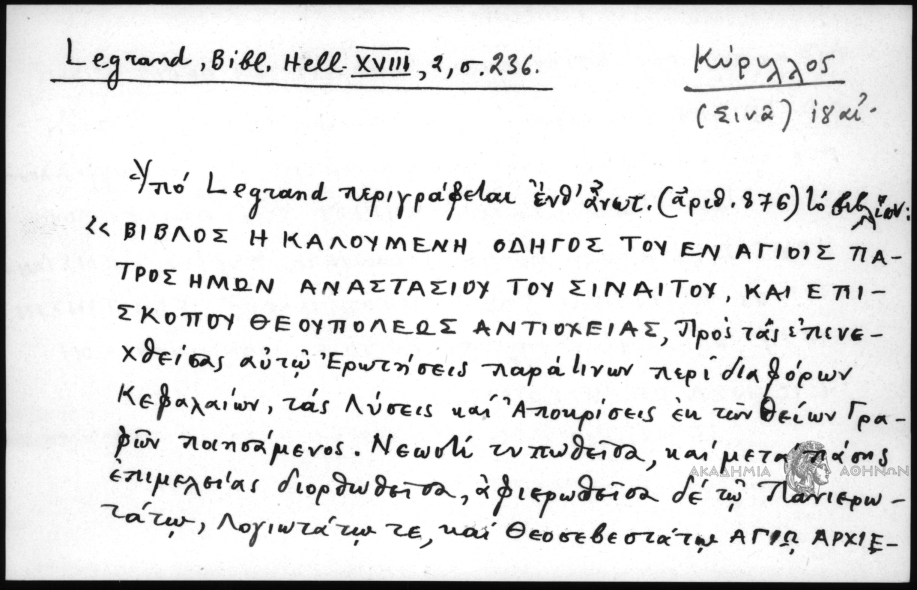 Legrand, Bibl. Hell. XVIII, 2, σ. 236.
Κύριλλος
(Σινᾶ) ιηαί.
Ὑπό Legrand περιγράφεται ἐνθ' ἀνωτ. (ἀριθ. 876) τό βιβλίον:
« ΒΙΒΛΟΣ Η ΚΑΛΟΥΜΕΝΗ ΟΔΗΓΟΣ ΤΟΥ ΕΝ ΑΓΙΟΙΣ ΠΑ-
ΤΡΟΣ ΗΜΩΝ ΑΝΑΣΤΑΣΙΟΥ ΤΟΥ ΣΙΝΑΙΤΟΥ, ΚΑΙ ΕΠΙ-
ΣΚΟΠΟΥ ΘΕΟΥΠΟΛΕΩΣ ΑΝΤΙΟΧΕΙΑΣ, Πρός τάς ἐπενε-
χθείσας αὐτῷ Ἐρωτήσεις παρά τινων περί διαφόρων
Κεφαλαίων, τάς Λύσεις καί Ἀποκρίσεις ἐκ τῶν Θείων Γρα-
φῶν ποιησάμενος. Νεωστί τυπωθεῖσα, καί μετά πάσης
ΑΚΑΔΗΜΙΑ ΑΘΗΝΩΝ
ἐπιμελείας διορθωθεῖσα, ἀφιερωθεῖσα δέ τῷ Πανιερω-
τάτῳ, Λογιωτάτῳ τε, καί Θεοσεβεστάτῳ ΑΓΙῼ ΑΡΧΙΕ-